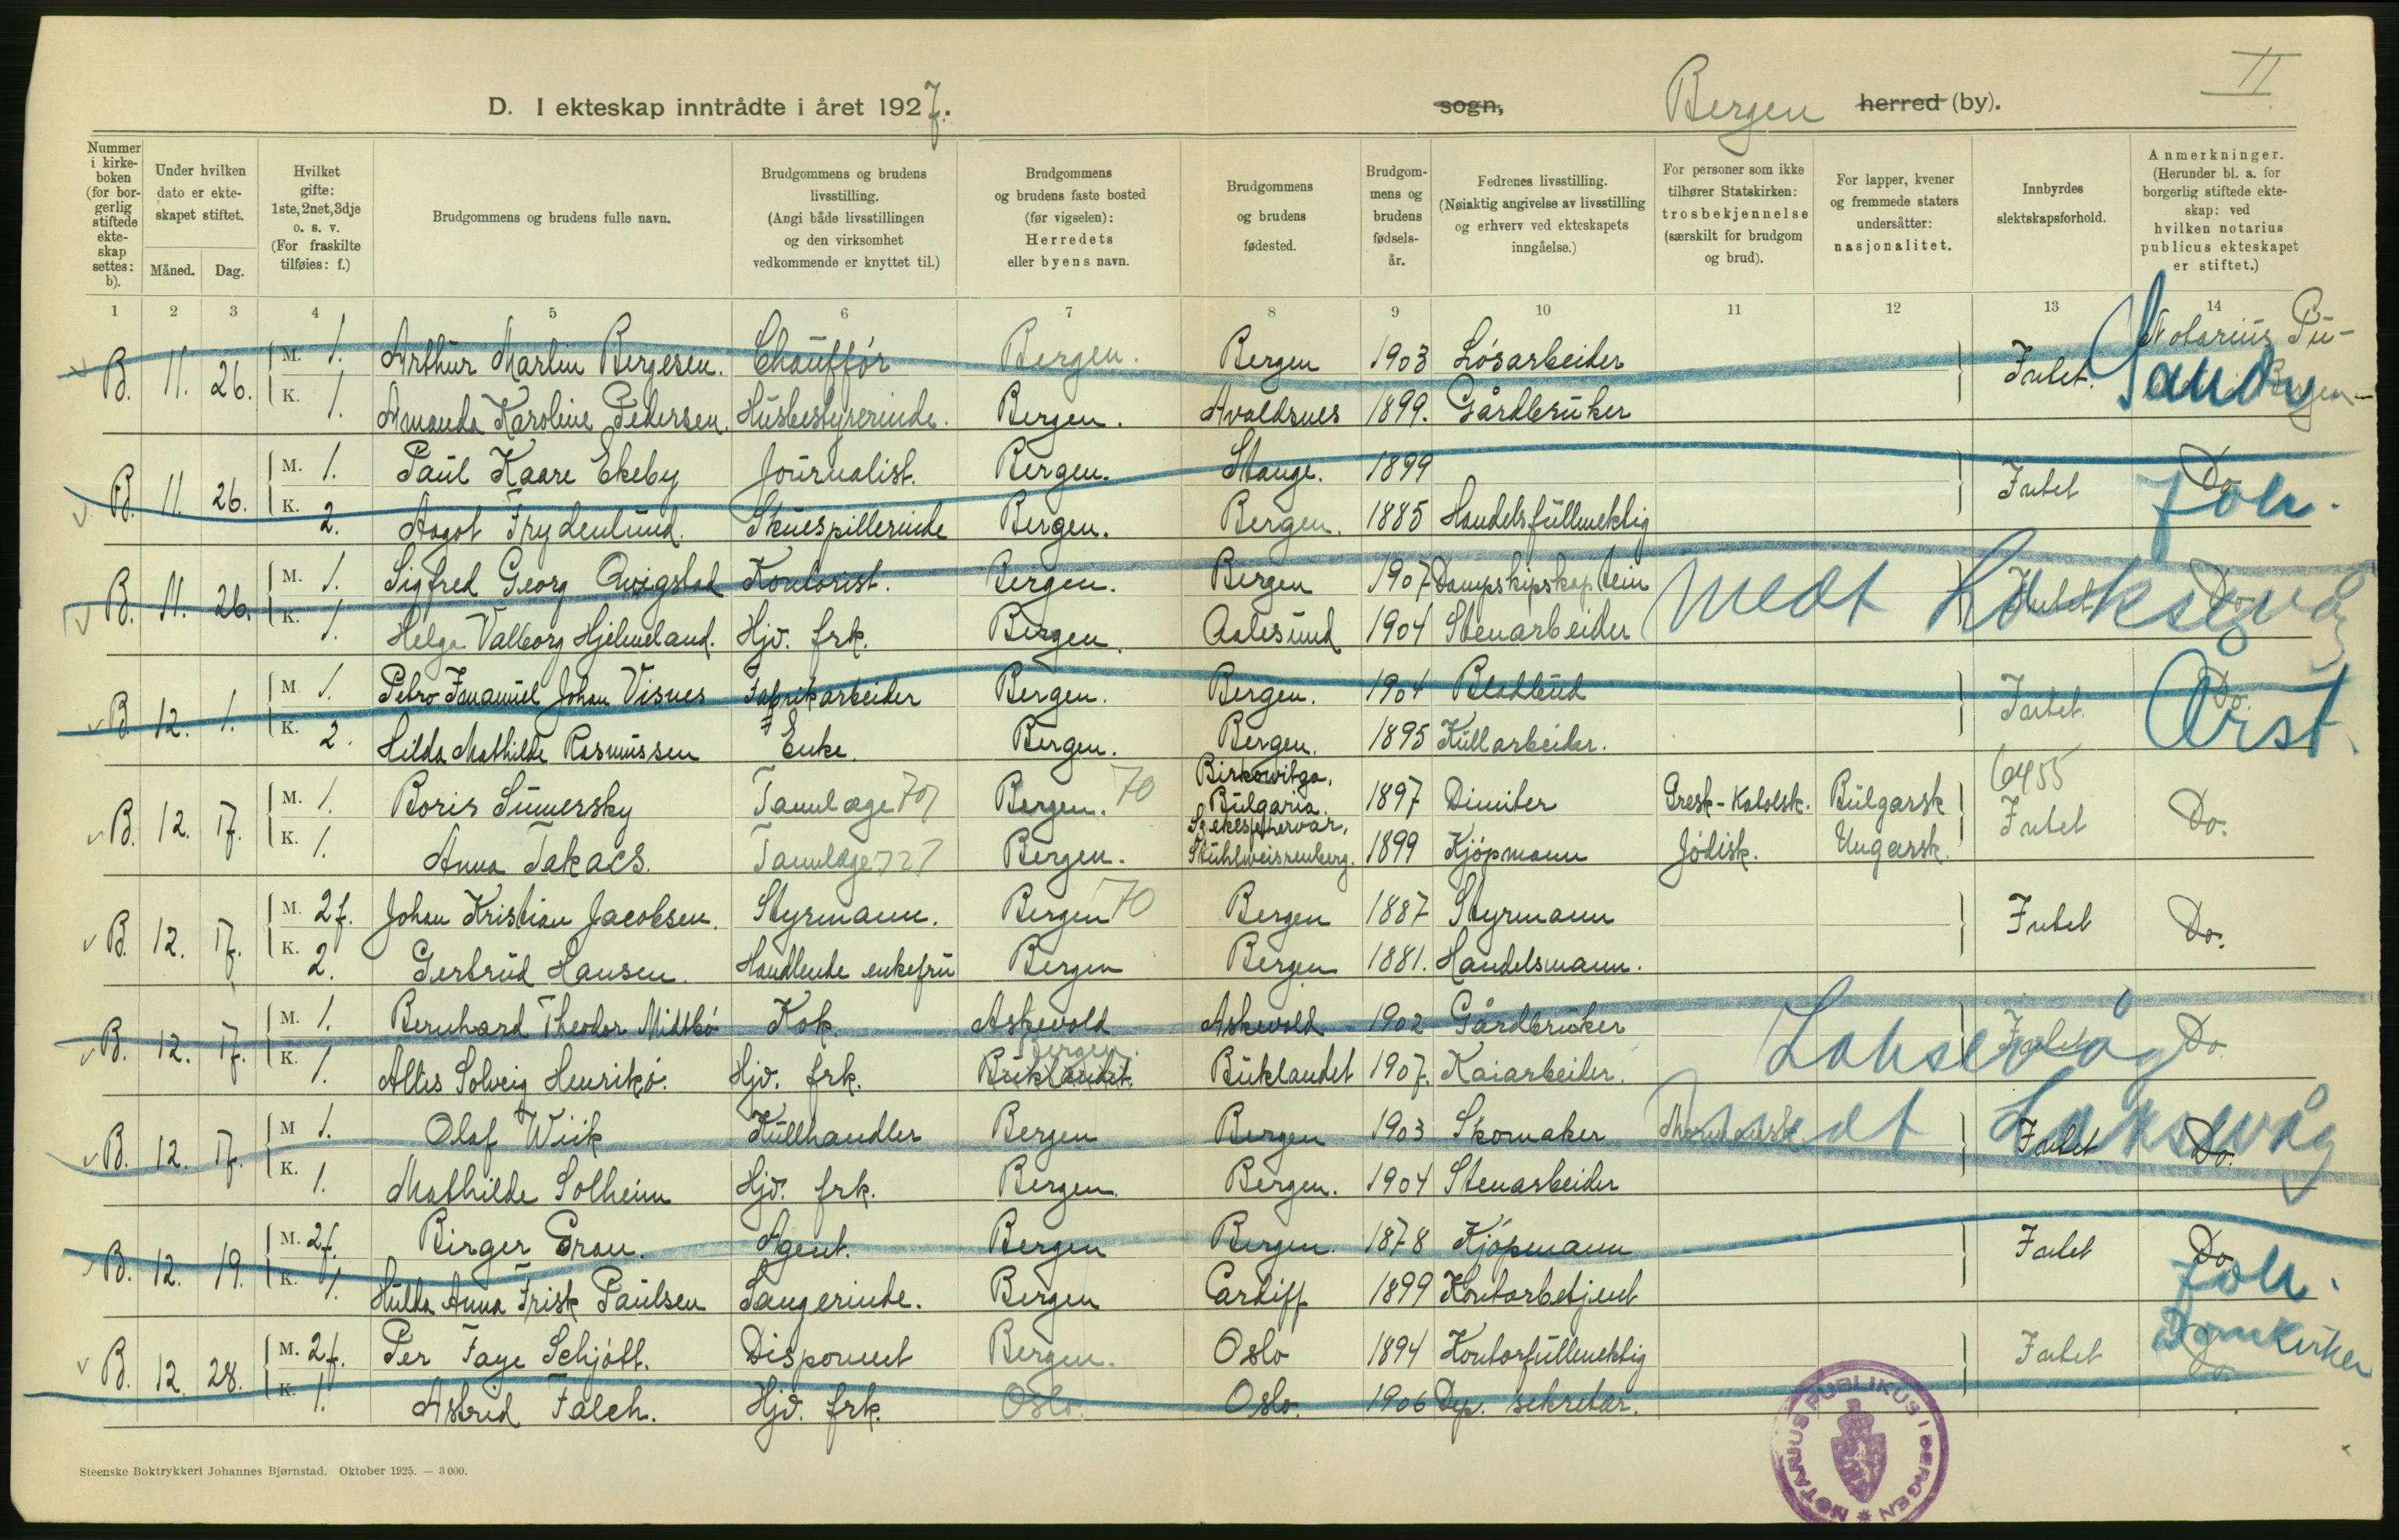 II
D. I ekteskap inntrådte i året 1927.
sogn, Bergen herred (by).
Nummer i kirkeboken (for borgerlig stiftede ekteskap settes: b).
Under hvilken dato er ekteskapet stiftet.
Måned. Dag.
Hvilket gifte: 1ste, 2net, 3dje o. s. v. (For fraskilte tilføies: f.)
Brudgommens og brudens fulle navn.
Brudgommens og brudens livsstilling. (Angi både livsstillingen og den virksomhet vedkommende er knyttet til.)
Brudgommens og brudens faste bosted (før vigselen): Herredets eller byens navn.
Brudgommens og brudens fødested.
Brudgommens og brudens fødselsår.
Fedrenes livsstilling. (Nøiaktig angivelse av livsstilling og erhverv ved ekteskapets inngåelse.)
For personer som ikke tilhører Statskirken: trosbekjennelse (særskilt for brudgom og brud).
For lapper, kvener og fremmede staters undersåtter: nasjonalitet.
Innbyrdes slektskapsforhold.
Anmerkninger. (Herunder bl. a. for borgerlig stiftede ekteskap: ved hvilken notarius publicus ekteskapet er stiftet.)
1 2 3 4 5 6 7 8 9 10 11 12 13 14
B. 11. 26. M. 1. Arthur Martin Bergesen. Chauffør Bergen. Bergen 1903 Løsarbeider Intet. Notarius Pu-
K. 1. Amanda Karoline Pedersen. Husbestyrerinde. Bergen. Avaldsnes 1899. Gårdbruker Sandv Bergen
B. 11. 26. M. 1. Paul Kaare Ekeby Journalist. Bergen. Stange. 1899 Intet Do.
K. 2. Aagot Frydenlund. Skuespillerinde Bergen. Bergen. 1885 Handelsfullmektig Joh.
B. 11. 26. M. 1. Sigfred Georg Qvigstad Kontorist. Bergen. Bergen 1907 Dampskipskaptein Intet Do.
K. 1. Helga Valborg Hjelmeland. Hjv. frk. Bergen. Aalesund 1904 Stenarbeider Medt Laksevåg
B. 12. 1. M. 1. Petro Imanuel Johan Visnes Fabrikarbeider Bergen. Bergen. 1904 Bladbud Intet. Do.
K. 2. Hilda Mathilde Rasmussen Enke. Bergen. Bergen. 1895 Kullarbeider. Årst.
B. 12. 17. M. 1. Boris Sumersky Tannlæge 707 Bergen. 70 Birkowitga, Bulgaria. 1897 Dimiter Gresk-Katolsk. Bulgarsk 6455 Intet Do.
K. 1. Anna Takacs. Tannlæge 727 Bergen. Szekesfehervar, Stuhlweissenberg. 1899 Kjøpmann Jødisk. Ungarsk.
B. 12. 17. M. 2f. Johan Kristian Jacobsen. Styrmann. Bergen 70 Bergen 1887 Styrmann Intet Do.
K. 2. Gertrud Hansen. Handlende enkefru Bergen Bergen 1881. Handelsmann.
B. 12. 17. M. 1. Bernhard Theodor Midtbø Kok. Askevold Askevold 1902 Gårdbruker Intet Do
K. 1. Altis Solveig Henrikø. Hjv. frk. Bergen. Buklandet. Buklandet 1907. Kaiarbeider. Laksevåg
B. 12. 17. M 1. Olaf Wiik Kullhandler Bergen Bergen 1903 Skomaker Intet Do.
K. 1. Mathilde Solheim Hjv. frk. Bergen. Bergen. 1904 Stenarbeider Laksevåg
B. 12. 19. M. 2f. Birger Grau. Agent. Bergen Bergen. 1878 Kjøpmann Intet Do
K. 1. Hulda Anna Frisk Paulsen Sangerinde. Bergen Cardiff 1899 Kontorbetjent Joh.
B. 12. 28. M. 2f. Per Faye Schjøtt. Disponent Bergen. Oslo 1894 Kontorfullmektig Intet Domkirken Do.
K. 1. Astrid Falch. Hjv. frk. Oslo. Oslo. 1906 Dep. sekretær.
NOTARIUS PUBLIKUS I BERGEN
Steenske Boktrykkeri Johannes Bjørnstad. Oktober 1925. — 3 000.